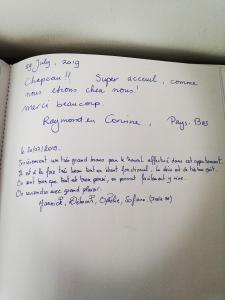 29 July, 2019
Chapeau!! Super acceuil, comme
nous etions chez nous!
merci beaucoup.
Raymond en Corinne, Pays-Bas
Sincèrement un très grand bravo pour le travail effectué dans cet appartement.
Il est à la fois très beau tout en étant fonctionnel, la déco est de très bon goût.
On sent bien que tout est bien pensé, on pourrait facilement y vivre.
On reviendra avec grand plaisir.
Yannick,